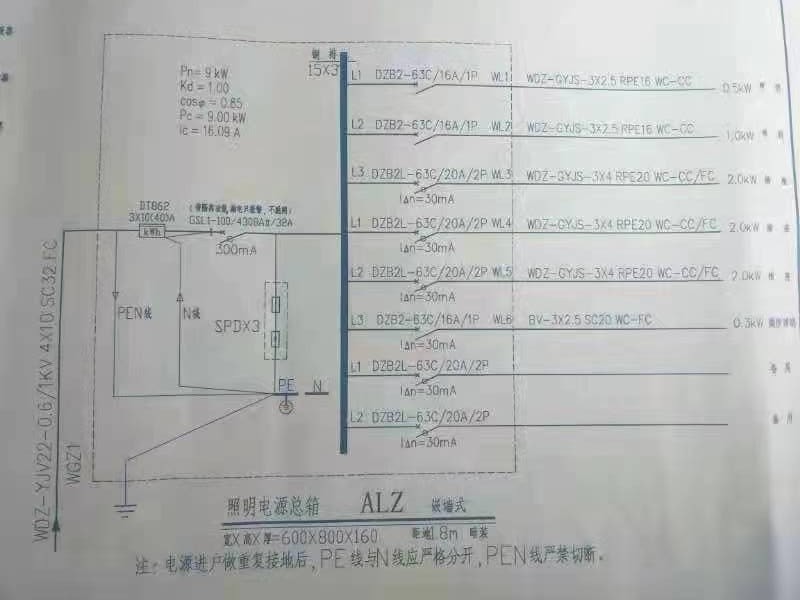 Pn= 9 kW
Kd = 1.00
cosφ = 0.85
Pc = 9.00 kW
Ic = 16.09 A
铜排
15X3
L1 DZB2-63C/16A/1P WL1 WDZ-GYJS-3X2.5 RPE16 WC-CC 0.5kW 照明
L2 DZB2-63C/16A/1P WL2 WDZ-GYJS-3X2.5 RPE16 WC-CC 1.0kW 照明
L3 DZB2L-63C/20A/2P WL3 WDZ-GYJS-3X4 RPE20 WC-CC/FC 2.0kW 插座
I△n=30mA
L1 DZB2L-63C/20A/2P WL4 WDZ-GYJS-3X4 RPE20 WC-CC/FC 2.0kW 插座
I△n=30mA
L2 DZB2L-63C/20A/2P WL5 WDZ-GYJS-3X4 RPE20 WC-CC/FC 2.0kW 插座
I△n=30mA
L3 DZB2-63C/16A/1P WL6 BV-3X2.5 SC20 WC-FC 0.3kW
I△n=30mA
L1 DZB2L-63C/20A/2P 备用
I△n=30mA
L2 DZB2L-63C/20A/2P 备用
I△n=30mA
DT862
3X10(40)A
kWh
GSL1-100/4308AⅡ/32A
300mA
PEN线
N线
SPDX3
PE
N
WDZ-YJV22-0.6/1KV 4X10 SC32 FC
WGZ1
照明电源总箱 ALZ 嵌墙式
宽X高X厚=600X800X160 距地1.8m 暗装
注：电源进户做重复接地后，PE线与N线应严格分开，PEN线严禁切断。